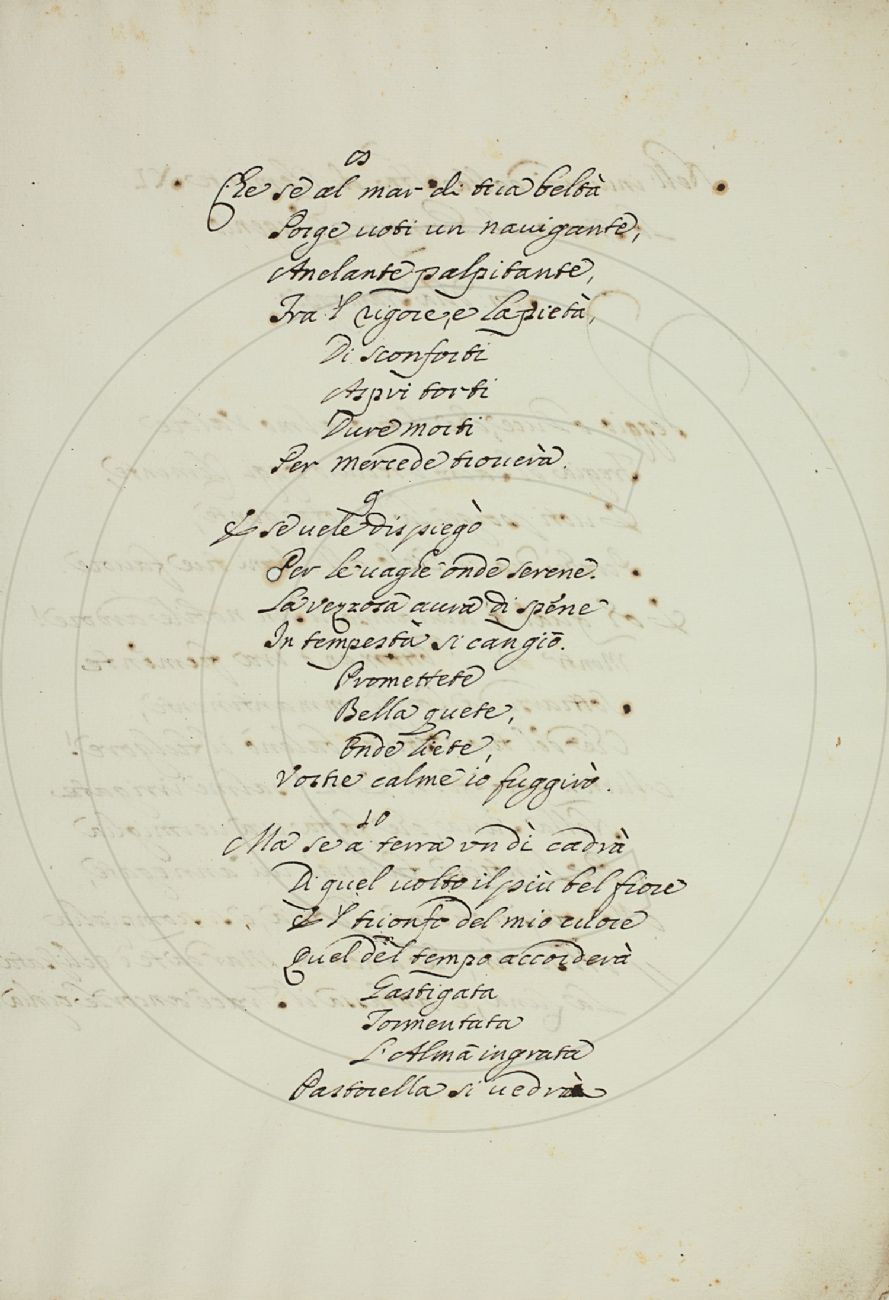 8
Che se al mar di tua beltà
Porge uoti un nauigante,
Anelante palpitante,
Tra 'l rigore, e la pietà,
Di sconforti
Aspri torti
Dure morti
Per mercede trouerà.
9
E se uele dispiegò
Per le uaghe onde serene.
La vezzosa aura di spene
In tempesta si cangiò.
Promettete
Bella quete,
Onde liete,
Vostre calme io fuggirò.
10
Ma se a terra vn dì cadrà
Di quel uolto il più bel fiore
E 'l trionfo del mio cuore
Quel del tempo accorderà
Gastigata
Tormentata
L'Alma ingrata
Pastorella si uedrà